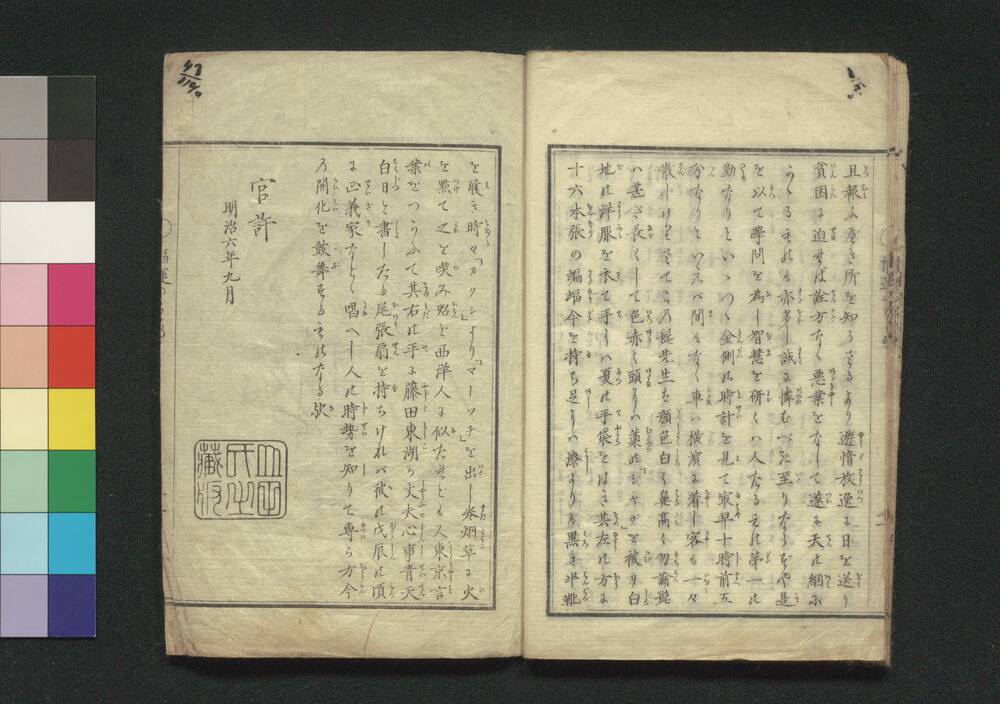 且報ふ可き所を知らざるより遊惰放逸に日を送り
貧困に迫れば詮方なく悪業をなして遂に天の網に
かゝるものも亦多し誠に憐むべき至りならずや是
を以て學問を為し智慧を研くハ人たるものゝ第一の
勤なりといゝつゝ金側の時計を見て最早十時前五
分なりといへバ間もなく車ハ横濱に着し客も一々
散
髭先生を顔色白く鼻高く勿論髭
ハ甚だ長くして色赤く頭にハ藁の「シヤツポ」を被り白
地の洋服を衣て手にハ夏の手袋をはき其左の方に
十六本張の蝙蝠傘を持ち足にハ漆よりも黒き半靴
を履き時々「カクシ」より「マーツチ」を出し巻烟草に火
を點て之を喫み殆ど西洋人に似たれども又東京言
葉をつかふて其右の手に藤田東湖の丈夫心事青天
白日と書したる尾張扇を持ちけれバ彼の戊辰の頃
に正義家などゝ唱へし人の時勢を知りて専ら方今
の開化を鼓舞するものなる欤
官許
明治六年九月
藏版